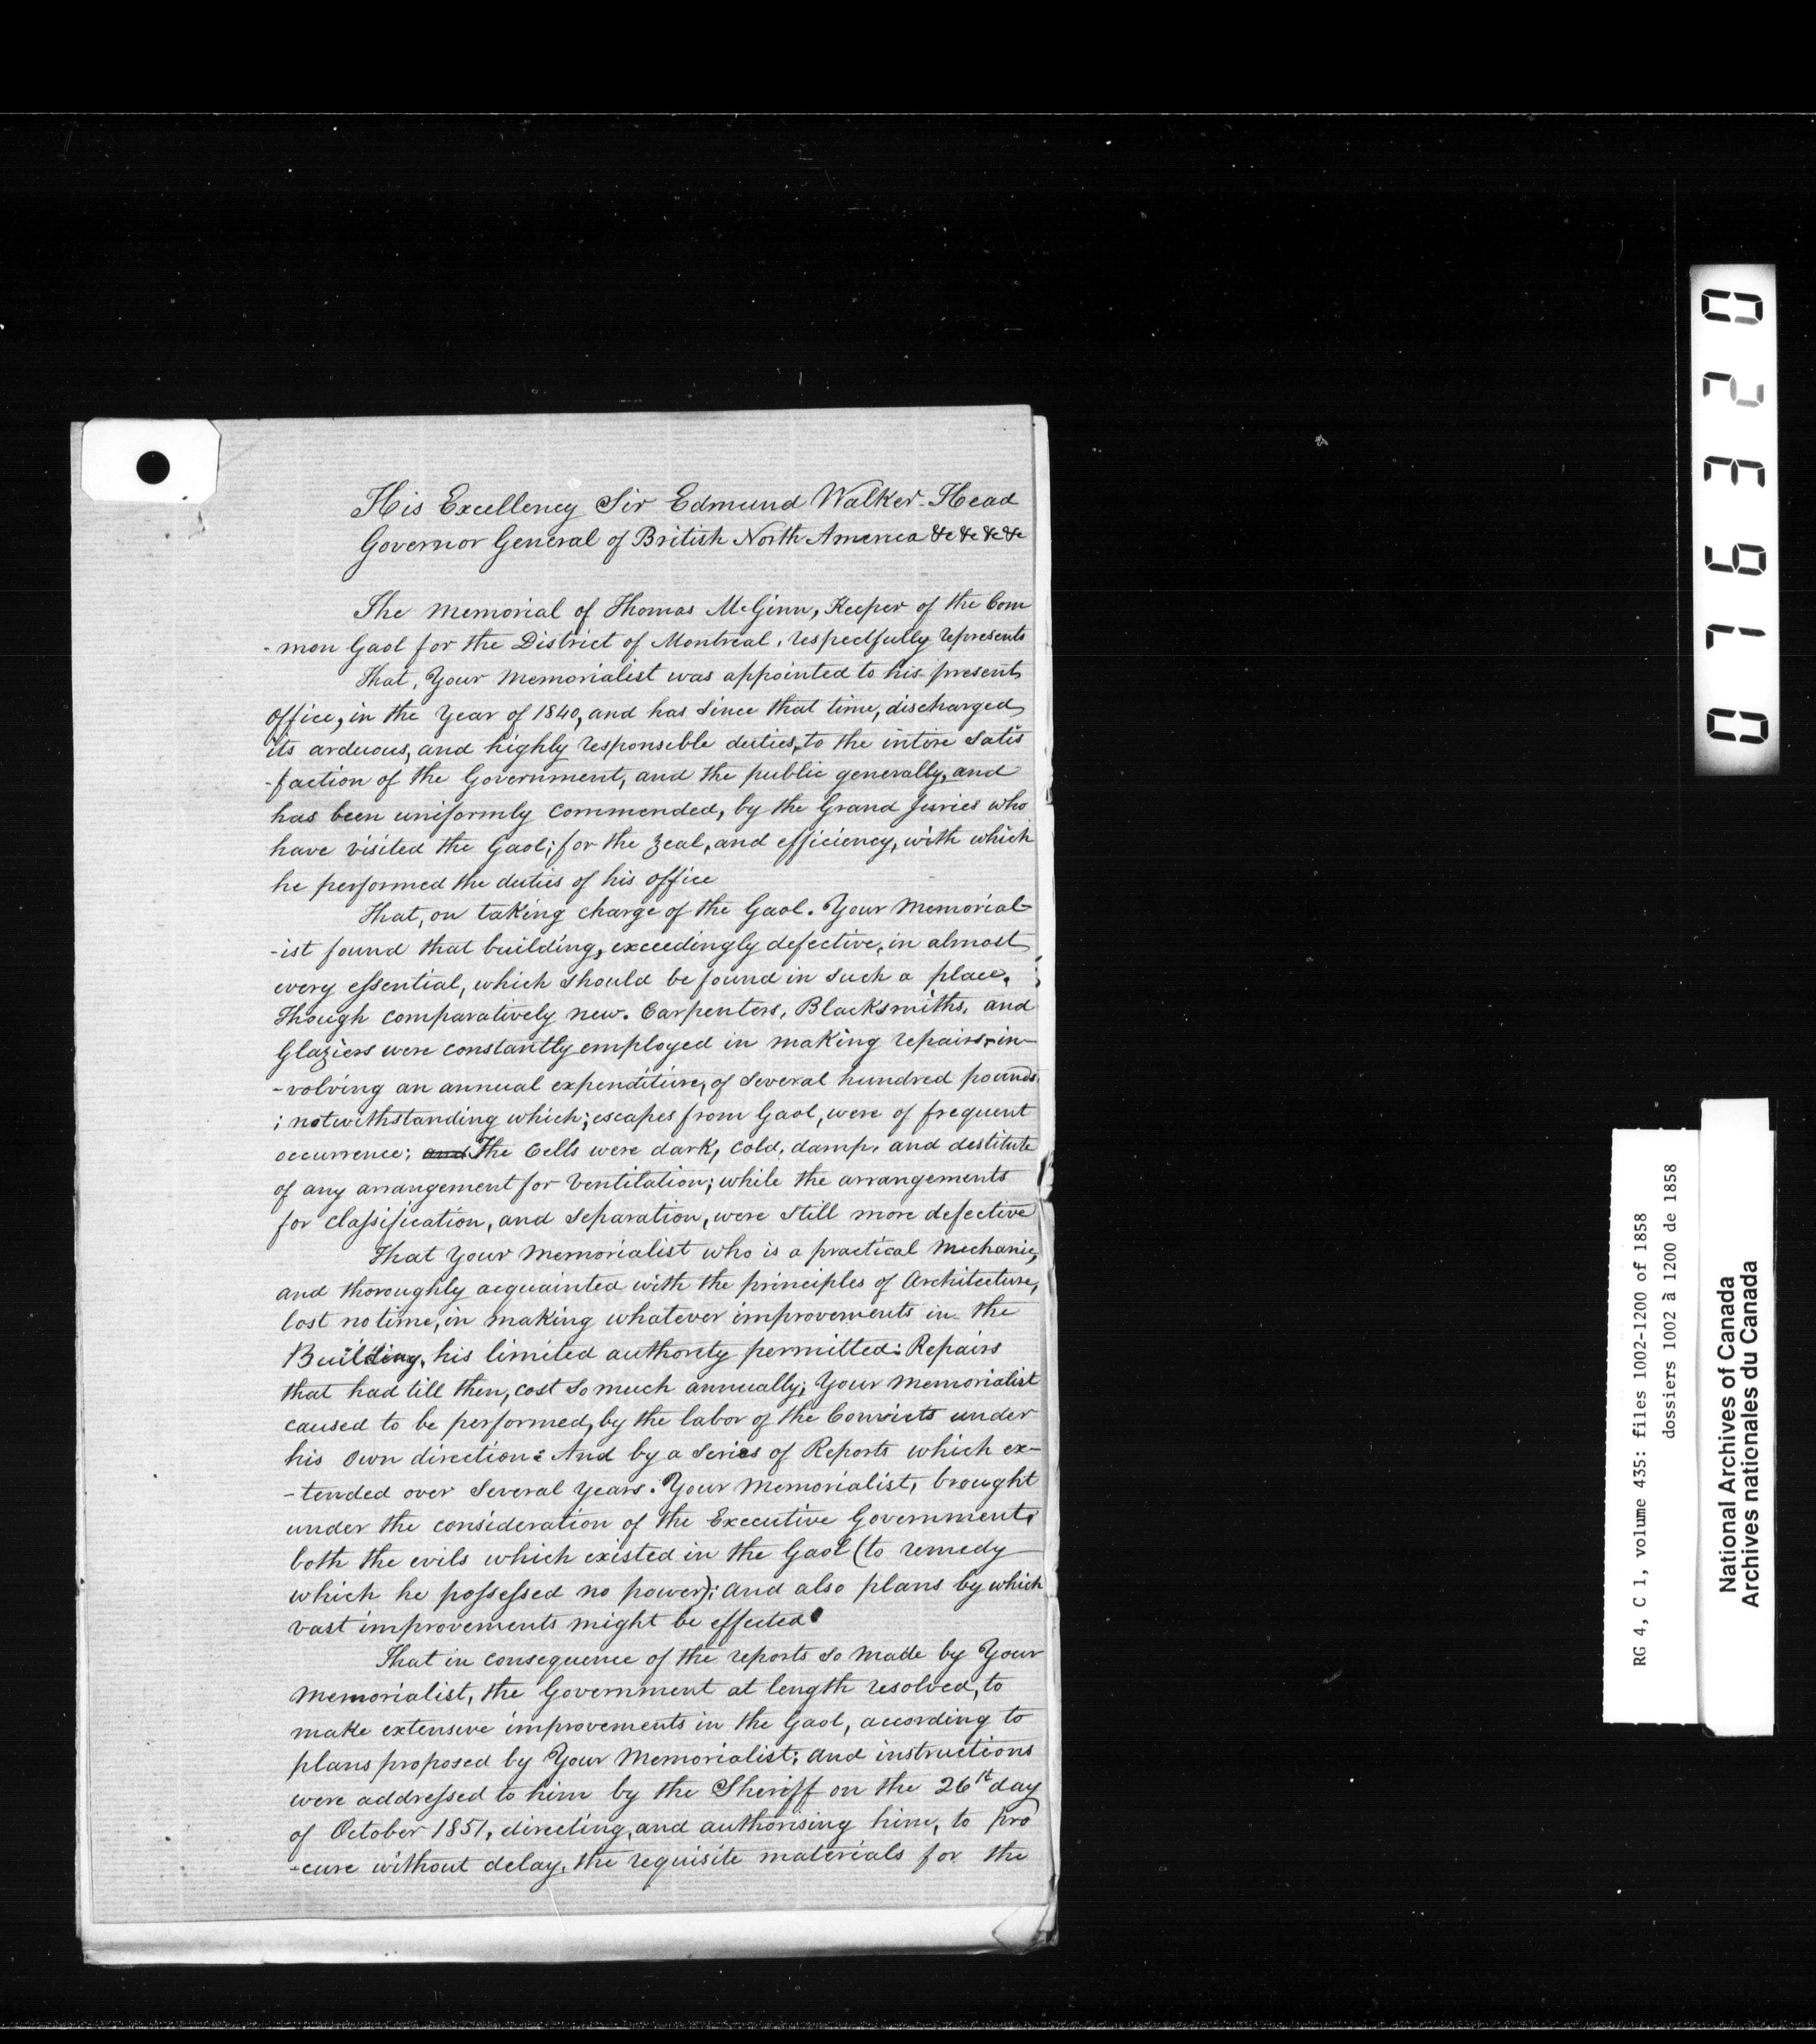 His Excellency Sir Edmund Walker Head
Governor General of British North America &c &c &c &c
The Memorial of Thomas McGinn, Keeper of the Com
-mon Gaol for the District of Montreal, respectfully represents
That, Your Memorialist was appointed to his present
Office, in the Year of 1840, and has since that time, discharged
its arduous, and highly responsible duties, to the intire satis
-faction of the Government, and the public generally, and
has been uniformly commended, by the Grand Juries who
have visited the Gaol; for the zeal, and efficiency, with which
he performed the duties of his office
That, on taking charge of the Gaol. Your Memorial-
-ist found that building, exceedingly defective, in almost
every essential, which should be found in such a place,
Though comparatively new. Carpenters, Blacksmiths, and
Glaziers were constantly employed in making repairs, in-
-volving an annual expenditure, of several hundred pounds
; notwithstanding which; escapes from Gaol, were of frequent
occurrence; and The Cells were dark, cold, damp, and destitute
of any arrangement for Ventilation; while the arrangements
for classification, and separation, were still more defective
That Your Memorialist who is a practical Mechanic,
and thoroughly acquainted with the principles of Architecture,
lost no time, in making whatever improvements in the
Building, his limited authority permitted: Repairs
that had till then, cost so much annually; Your Memorialist
caused to be performed, by the labor of the Convicts under
his own direction: And by a series of Reports which ex-
-tended over several Years. Your Memorialist, brought
under the consideration of the Executive Government;
both the evils which existed in the Gaol (to remedy
which he possessed no power); and also plans by which
vast improvements might be effected.
That in consequence of the reports so made by Your
Memorialist, the Government at length resolved, to
make extensive improvements in the Gaol, according to
plans proposed by Your Memorialist; and instructions
were addressed to him by the Sheriff on the 26st day
of October 1851, directing, and authorising him, to pro
-cure without delay, the requisite materials for the
076320
RG 4, C 1, volume 435: files 1002-1200 of 1858
dossiers 1002 à 1200 de 1858
National Archives of Canada
Archives nationales du Canada